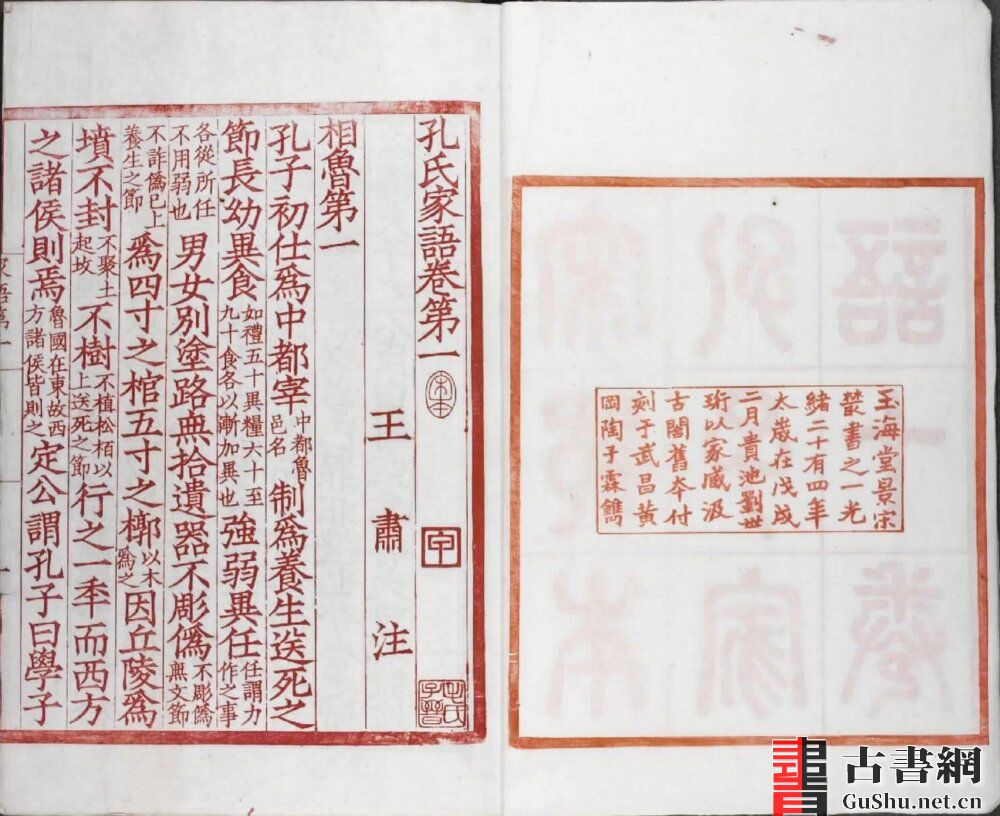 玉海堂景宋
叢書之一光
緒二十有四年
太歲在戊戌
二月貴池劉世
珩以家藏汲
古閣舊夲付
刻于武昌黃
岡陶子霖鐫
孔氏家語卷第一 宋本 甲 毛氏子晉
王肅注
相魯第一
孔子初仕爲中都宰中都魯邑名制爲養生送死之
節長幼異食如禮五十異糧六十至九十食各以漸加異也強弱異任任謂力作之事
各從所任不用弱也男女別塗路無拾遺器不彫僞不彫僞無文節
不詐僞已上養生之節爲四寸之棺五寸之槨以木爲之因丘陵爲
墳不封不聚土起坟不樹不植松栢以上送死之節行之一秊而西方
之諸侯則焉魯國在東故西方諸侯皆則之定公謂孔子曰學子
古書網
GuShu.net.cn